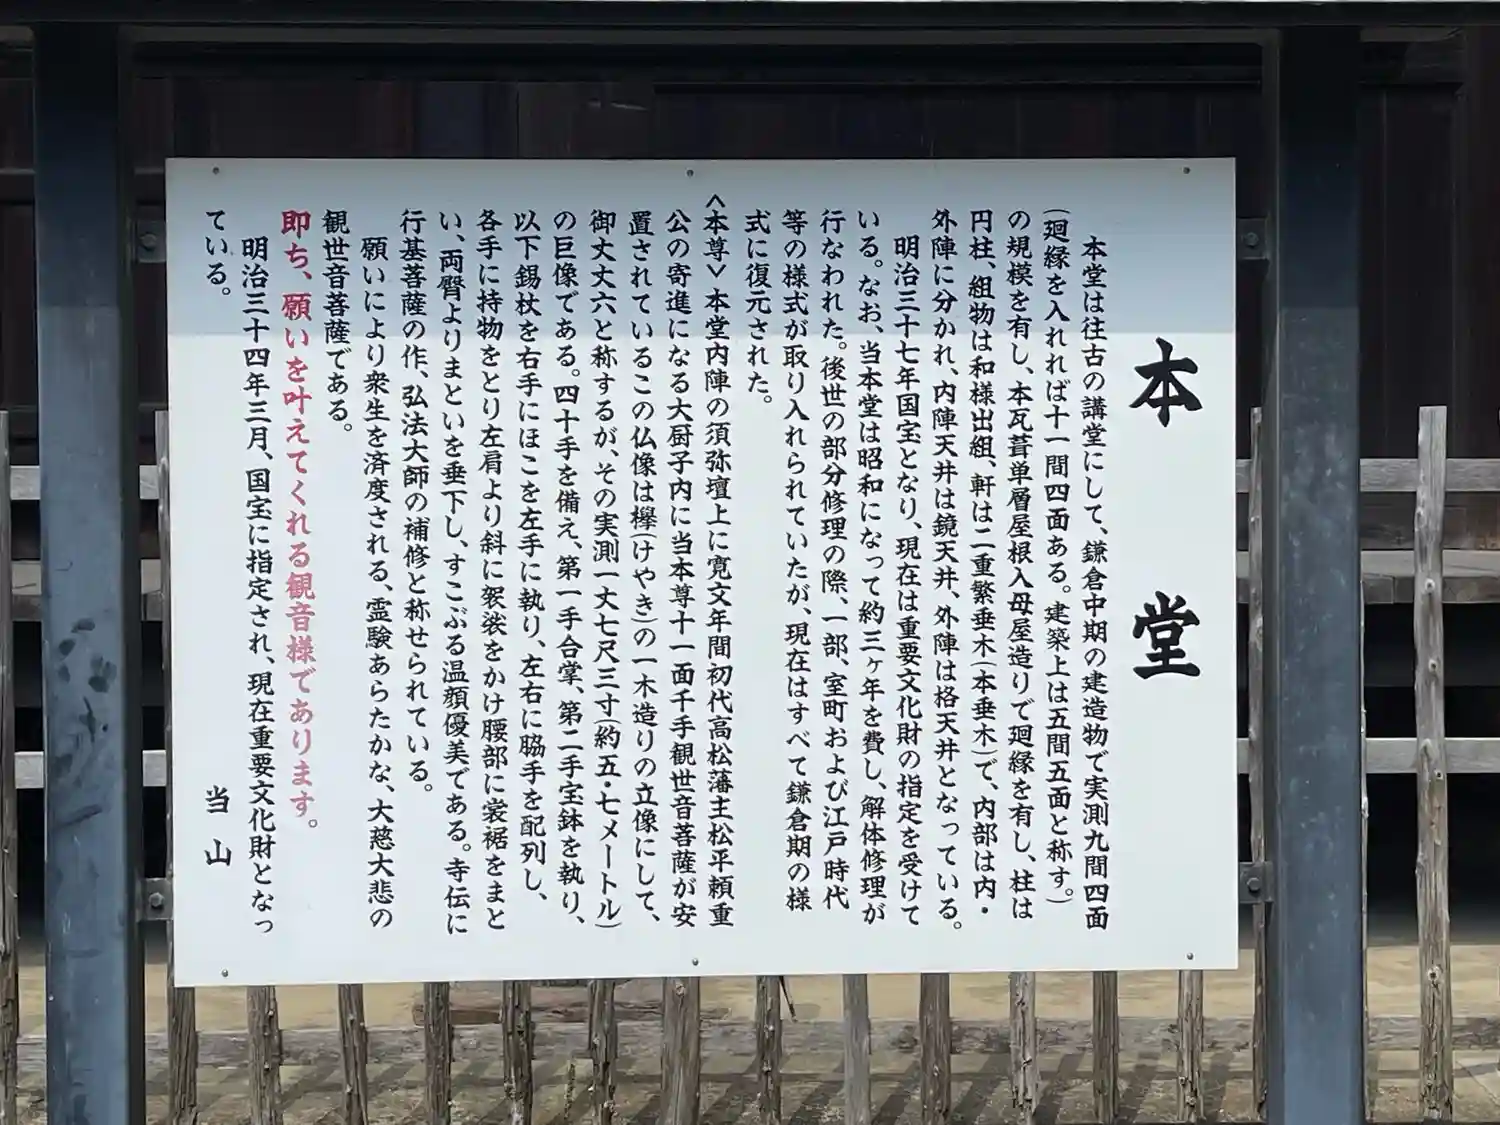 本堂
本堂は往古の講堂にして、鎌倉中期の建造物で実測九間四面
(廻縁を入れれば十一間四面ある。建築上は五間五面と称す。)
の規模を有し、本瓦葺単層屋根入母屋造りで廻縁を有し、柱は
円柱、組物は和様出組、軒は二重繁垂木(本垂木)で、内部は内・
外陣に分かれ、内陣天井は鏡天井、外陣は格天井となっている。
明治三十七年国宝となり、現在は重要文化財の指定を受けて
いる。なお、当本堂は昭和になって約三ヶ年を費し、解体修理が
行なわれた。後世の部分修理の際、一部、室町および江戸時代
等の様式が取り入れられていたが、現在はすべて鎌倉期の様
式に復元された。
<本尊>本堂内陣の須弥壇上に寛文年間初代高松藩主松平頼重
公の寄進になる大厨子内に当本尊十一面千手観世音菩薩が安
置されているこの仏像は欅(けやき)の一木造りの立像にして、
御丈丈六と称するが、その実測一丈七尺三寸(約五・七メートル)
の巨像である。四十手を備え、第一手合掌、第二手宝鉢を執り、
以下錫杖を右手にほこを左手に執り、左右に脇手を配列し、
各手に持物をとり左肩より斜に袈裟をかけ腰部に裳裾をまと
い、両臂よりまといを垂下し、すこぶる温顔優美である。寺伝に
行基菩薩の作、弘法大師の補修と称せられている。
願いにより衆生を済度される、霊験あらたかな、大慈大悲の
観世音菩薩である。
即ち、願いを叶えてくれる観音様であります。
明治三十四年三月、国宝に指定され、現在重要文化財となっ
ている。
当山